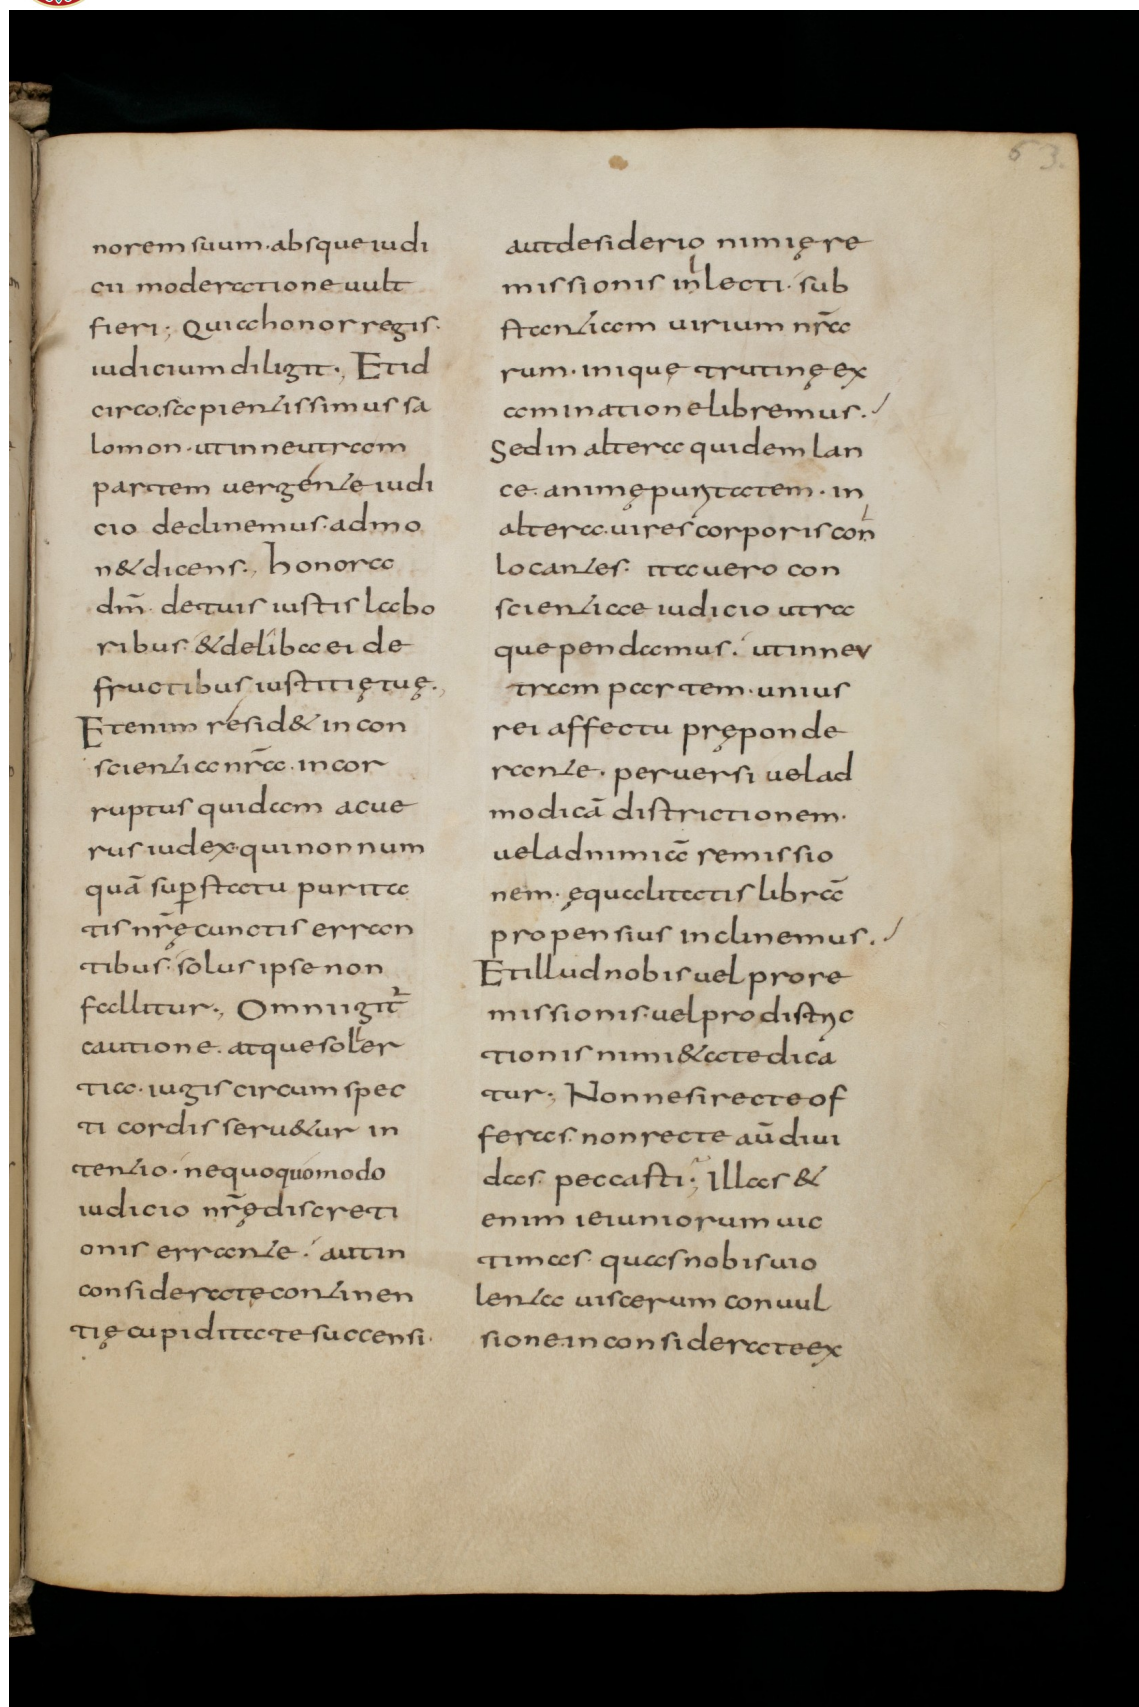 63.
norem suum· absque iudi
cii moderatione uult
fieri; Quia honor regis·
iudicium diligit·, Et id
circo, sapientissimus sa
lomon· ut in neutram
partem uergente iudi
cio declinemus· admo
n&dicens·, honora
dm̄· de tuis iustis labo
ribus· & deliba ei de
fructibus iustitię tuę·,
Etenim resid& in con
scientia nr̄a· incor
ruptus quidam ac ue
rus iudex· qui non num
quā sup̱ statu purita
tis nr̄ę cunctis erran
tibus· solus ipse non
fallitur·, Omni igit᷑
cautione· atque soller
tia· iugis circumspec
ti cordis seru&ur in
tentio· ne quo quomodo
iudicio nr̄ę discreti
onis errante·́ aut in
considerate contin en
tię cupiditate succensi·
aut desiderio nimię re
missionis inlecti· sub
stantiam uirium nr̄a
rum· inique̜ trutinę ex
aminatione libremus·/
Sed in altera quidem lan
ce· animę puritatem· in
altera· uires corporis con
locantes· ita uero con
scientiae iudicio utra
que pendamus·́ ut in neu
tram partem· unius
rei affectu pręponde
rante· peruersi uel ad
modicā districtionem·
uel ad nimiā remissio
nem· ęqualitatis librā
propensius inclinemus·/
Et illud nobis uel pro re
missionis· uel pro distric
tionis nimi&ate dica
tur·, Nonne si recte of
feras· non recte aū diui
das· peccasti·, Illas &
enim ieiuniorum uic
timas· quas nobis uio
lentia uiscerum conuul
sione· inconsiderate ex